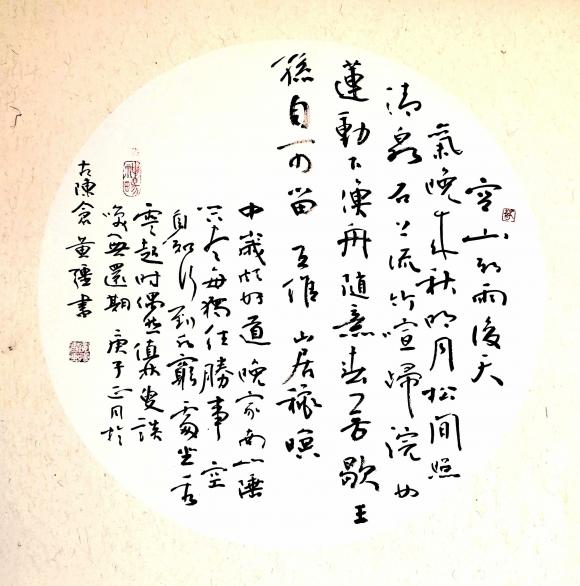 空山新雨後天
氣晚來秋明月松間照
清泉石上流竹喧歸浣女
蓮動下漁舟隨意春芳歇王
孫自可留王維山居秋暝
中歲頗好道晚家南山陲
興來每獨往勝事空
自知行到水窮處坐看
雲起時偶然值林叟談
笑無還期庚子正月於
古陳倉黃書